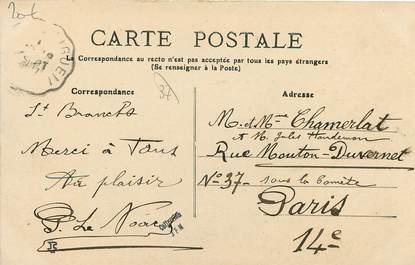 CARTE POSTALE
La Correspondance au recto n'est pas acceptée par tous les pays étrangers
(Se renseigner à la Poste)
Correspondance
Adresse
37
St Branchs
Merci à Tous
Au plaisir
P. Le
M. et Mme Chamerlat
et M. Jules
Rue Mouton-Duvernet
No 37 - sous la Comète
Paris
14e